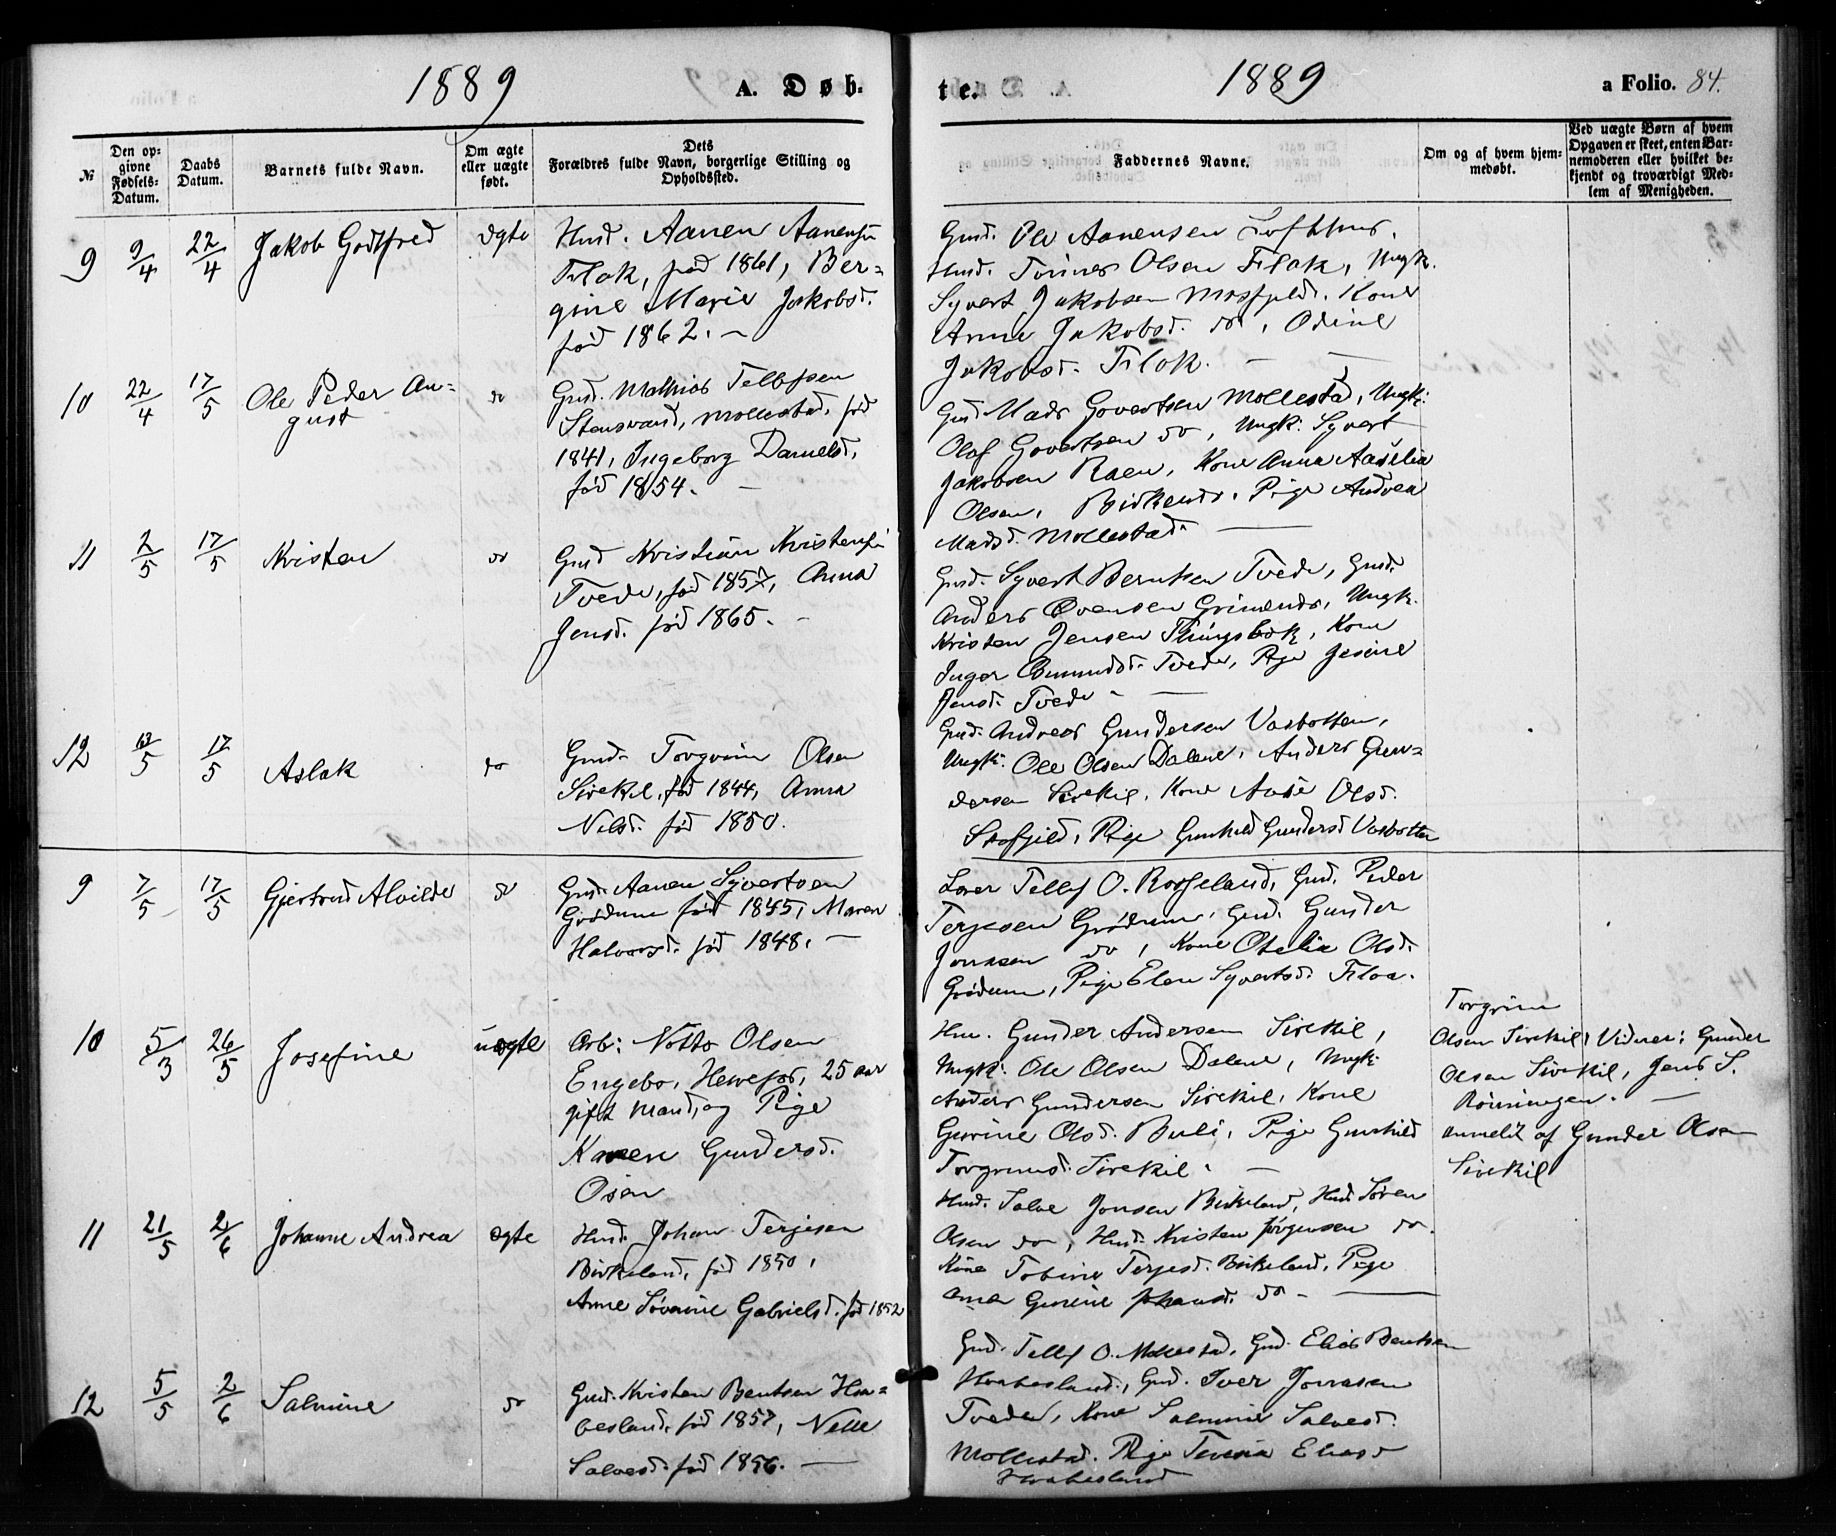 1889 A. Døb-
№
Den op-
givne
Fødsels-
Datum.
Daabs
Datum.
Barnets fulde Navn.
Om ægte
eller uægte
født.
Dets
Forældres fulde Navn, borgerlige Stilling og
Opholdssted.
9 9/4 22/4 Jakob Godtfred ægte Husd. Aanen Aanensen
Flak, född 1861, Ber-
gine Marie Jakobsd.
fød 1862. —
10 22/4 17/5 Ole Peder Au-
gust do Gud. Mathias Tellefsen
Stensvand, Mollestad, fød
1841, Ingeborg Danielsd,
fød 1854. —
11 2/5 17/5 Kristen do Gud Kristian Kristensen
Tvede, fød 1857, Anna
Jensd. fød 1865. -
12 13/5 17/5 Aslak do Gud. Torgrim Olsen
Sirekil, fød 1844, Anna
Nilsd. fød 1850.
9 7/5 17/5 Gjertrud Alvilde do Gud. Aanen Syvertsen
Grødum fød 1845, Maren
Halvorsd. fød 1848. —
10 5/3 26/5 Josefine uægte Arb: Notto Olsen
Engebo, Herefos, 25 aar
gift Mand, og Pige
Karen Gundersd.
Osen
11 21/5 2/6 Johanne Andrea ægte Husd. Johan Terjesen
Birkeland, fød 1850,
Anne Sørine Gabrielsd. fød 1852
12 5/5 2/6 Salmine do Gud. Kristen Bentsen Hva-
besland, fød 1857, Nelle
Salvesd. fød 1856. —
te. 1889 a Folio. 84.
Faddernes Navne.
Om og af hvem hjem-
medøbt.
Ved uægte Børn af hvem
Opgaven er skeet, enten Bar-
nemoderen eller hvilket be-
kjendt og troværdigt Med-
lem af Menigheden.
Gud. Ole Aanensen Lofthus.
Husd. Tønnes Olsen Flak, Ungk.
Syvert Jakobsen Mosfjeld. Kone
Anne Jakobsd. do, Odine
Jakobsd. Flak. — —
Gud Mads Govertsen Mollestad, Ungk:
Olaf Govertsen do, Ungk: Syvert
Jakobsen Raen, Kone Anna Aaselia
Olsen, Birkenes. Pige Andrea
Madsd. Mollestad. —
Gud. Syvert Berntsen Tvede, Gud.
Anders Evensen Grimenes, Ungk.
Kristen Jensen Thingsbæk, Kone
Inger Osmundsd. Tvede, Pige Jesine
Jensd. Tvede - —
Gud. Andreas Gundersen Vasbotten,
Ungk: Ole Olsen Dalene, Anders Gun-
dersen Sirekil, Kone Aase Olsd.
Pige Gunhild Gundersd Vasbotten
Lærer Tellef O. Rosseland, Gud. Peder
Terjesen Grødum, Gud. Gunder
Jonasen do, Kone Otelia Olsd.
Grødum, Pige Elen Syvertsd. Flaa.
Hm. Gunder Andersen Sirekil,
Ungk: Ole Olsen Dalene, Ungk:
Anders Gundersen Sirekil, Kone
Gurine Olsd. Buli, Pige Gunhild
Torgrimsd. Sirekil. —
Torgrim
Olsen Sirekil, Vidner: Gunder
Olsen Sirekil, Jens S.
Rönningen. —
anmeldt af Gunder Olsen
Sirekil
Husd. Salve Jonsen Birkeland, Husd. Søren
Olsen do, Husd. Kristen Jørgensen do.
Kone Tobine Terjesd. Birkeland, Pige
Gurine Johansd. do - —
Gud. Tellef O. Mollestad, Gud. Elias Bentsen
Hvabesland, Gud. Iver Jonasen
Tvede, Kone Salmine Salvesd.
Mollestad. Pige Teresia Eliasd
Hvabesland